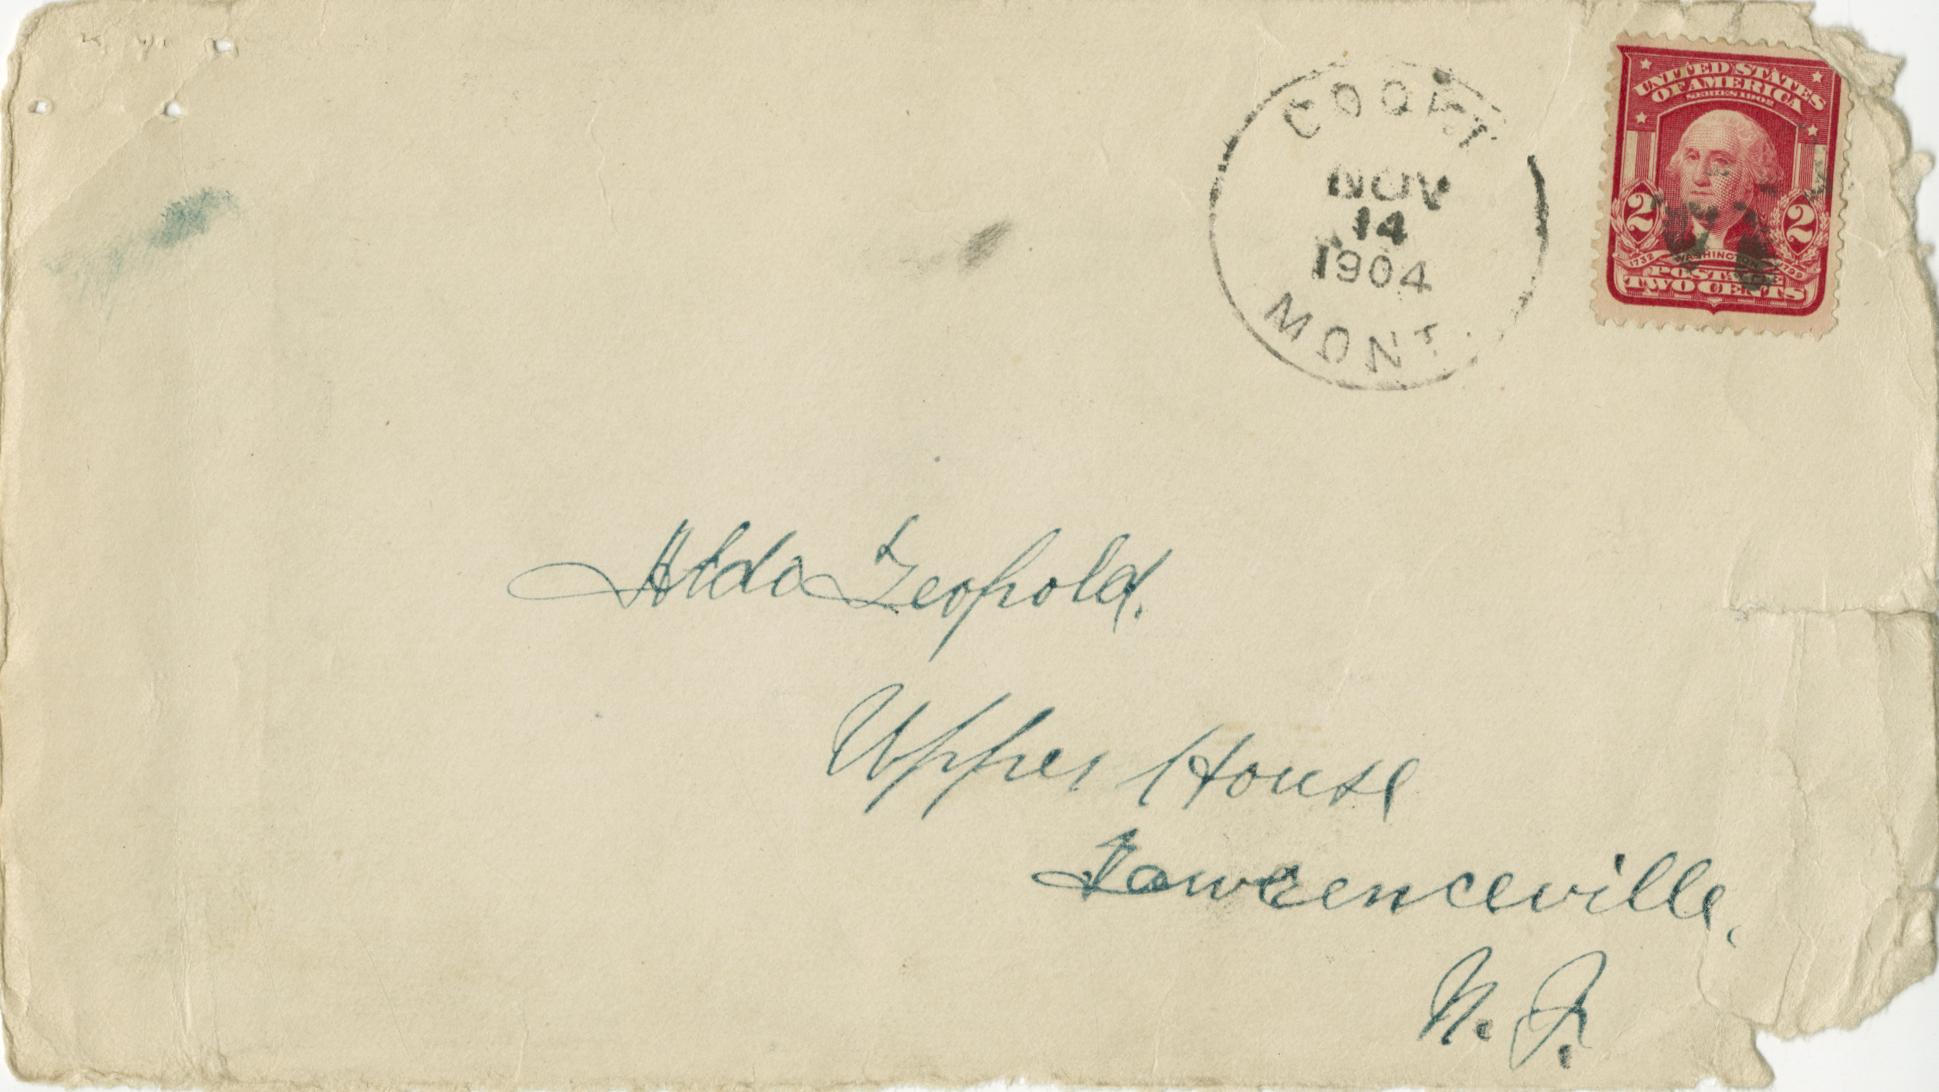 NOV
14
1904
MONT.
UNITED STATES
OF AMERICA
SERIES 1902
2 2
1732 WASHINGTON 1799
POSTAGE
TWO CENTS
Aldo Leopold.
Upper House
Lawrenceville,
N. J.